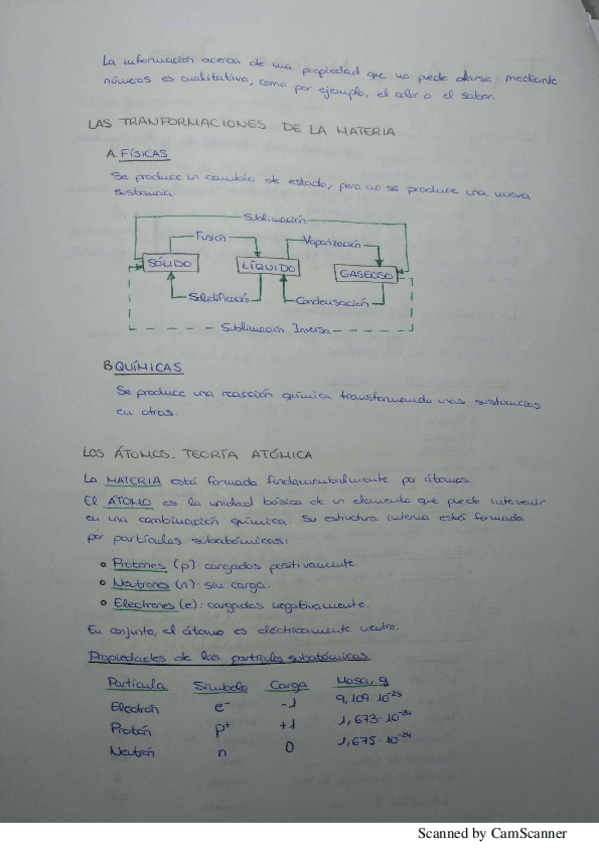 La información acerca de una propiedad que no puede darse mediante
números es cualitativa, como por ejemplo, el color o el sabor.
LAS TRANFORMACIONES DE LA MATERIA
A. FÍSICAS
Se produce un cambio de estado, pero no se produce una nueva
sustancia.
Sublimación
Fusión
Vaporización
SÓLIDO
LÍQUIDO
GASEOSO
Solidificació
Condensación
Sublimación Inversa
B QUÍMICAS
Se produce una reacción química transformando unas sustancias
en otras.
LOS ÁTOMOS. TEORÍA ATÓMICA
La MATERIA está formada fundamentalmente por átomos.
El ÁTOMO es la unidad básica de un elemento que puede intervenir
en una combinación química. Su estructura interna está formada
por partículas subatómicas:
Protones (p): cargados positivamente.
Neutrones (n): sin carga.
Electrones (e): cargados negativamente.
En conjunto, el átomo es eléctricamente neutro.
Propiedades de las partículas subatómicas
Partícula Símbolo Carga Masa, g
Electrón e⁻ -1 9,109·10⁻²⁸
Protón p⁺ +1 1,673·10⁻²⁴
Neutrón n 0 1,675·10⁻²⁴
Scanned by CamScanner